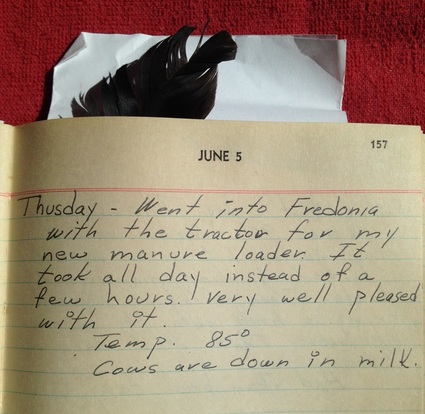 157
JUNE 5
Thusday - Went into Fredonia
with the tractor for my
new manure loader. It
took all day instead of a
few hours. Very well pleased
with it.
Temp. 85°
Cows are down in milk.